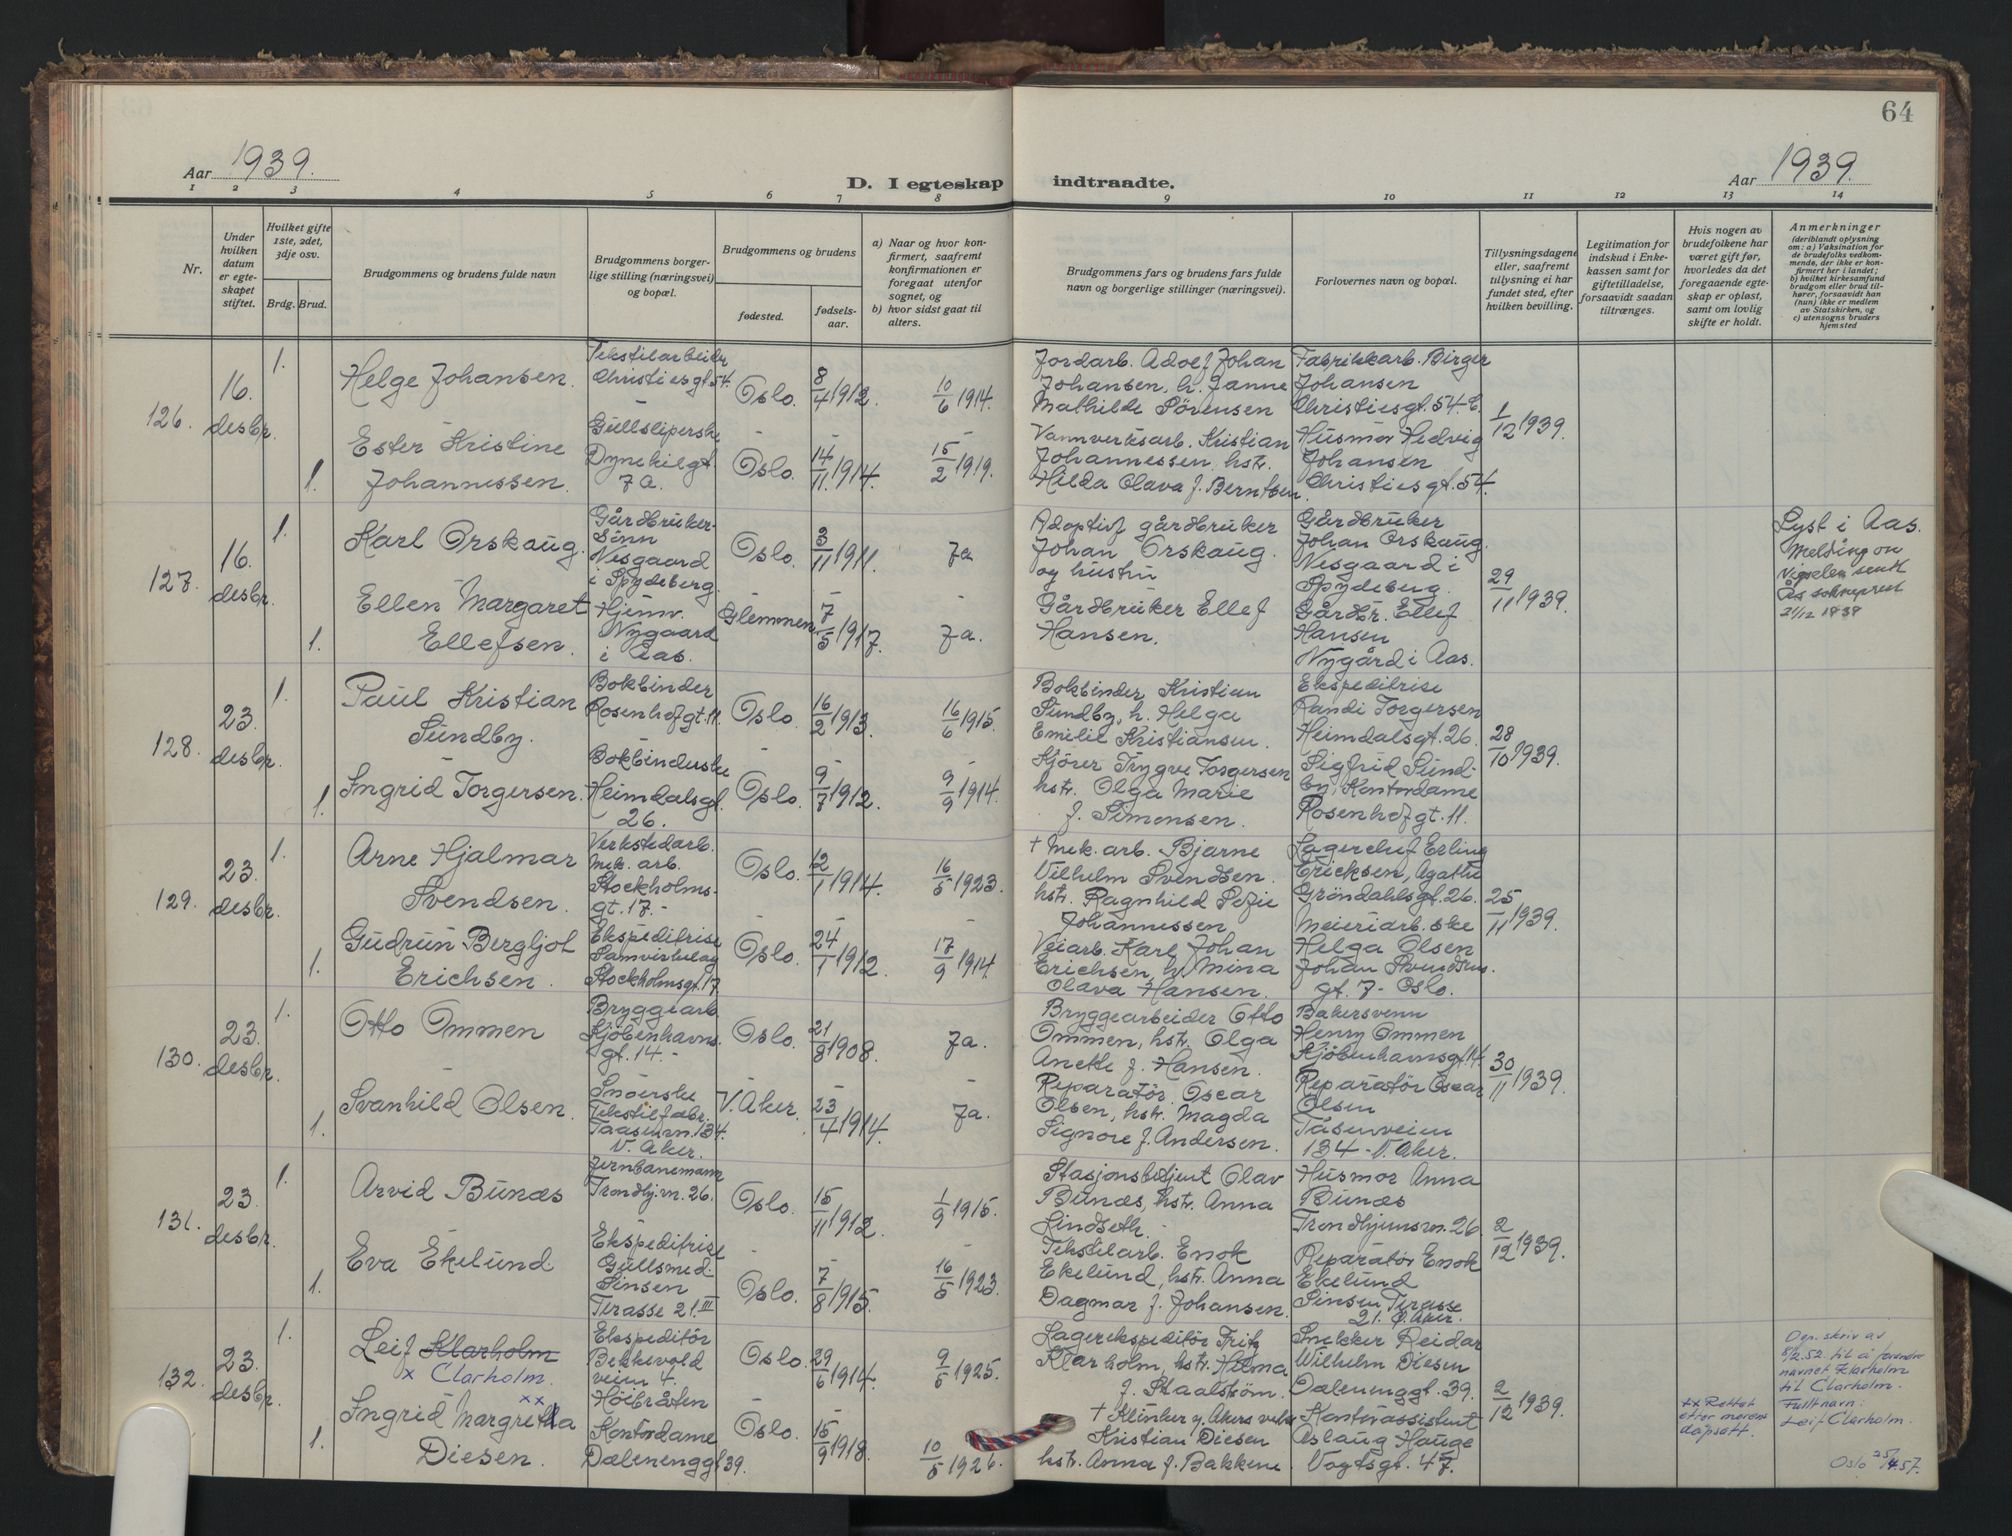 64
Aar 1939.
D. I egteskap indtraadte.
Aar 1939.
1 2 3 4 5 6 7 8 9 10 11 12 13 14
Nr.
Under hvilken datum er egteskapet stiftet.
Hvilket gifte 1ste, 2det, 3dje osv.
Brdg. Brud.
Brudgommens og brudens fulde navn
Brudgommens borgerlige stilling (næringsvei) og bopæl.
Brudgommens og brudens
fødested.
fødselsaar.
a) Naar og hvor konfirmert, saafremt konfirmationen er foregaat utenfor sognet, og
b) hvor sidst gaat til alters.
Brudgommens fars og brudens fars fulde navn og borgerlige stillinger (næringsvei).
Forlovernes navn og bopæl.
Tillysningsdagene eller, saafremt tillysning ei har fundet sted, efter hvilken bevilling.
Legitimation for indskud i Enkekassen samt for giftetilladelse, forsaavidt saadan tiltrænges.
Hvis nogen av brudefolkene har været gift før, hvorledes da det foregaaende egteskap er opløst, samt om lovlig skifte er holdt.
Anmerkninger
(deriblandt oplysning om: a) Vaksination for de brudefolks vedkommende, der ikke er konfirmert her i landet; b) hvilket kirkesamfund brudgom eller brud tilhører, forsaavidt han (hun) ikke er medlem av Statskirken, og c) utensogns bruders hjemsted
126. 16. desbr.
1. Helge Johansen.
Tekstilarbeider
Christiesgt. 54.
Oslo. 8/4 1912. 10/6 1914.
Jordarb. Adolf Johan
Johansen, h. Janne
Mathilde Sörensen
Fabrikkarb. Birger
Johansen
Christiesgt. 54.
1/12 1939.
1. Ester Kristine
Johannessen.
Gullsliperske
Dynekilgt.
7a.
Oslo. 14/11 1914. 15/2 1919.
Vannverksarb. Kristian
Johannessen, hstr.
Hilda Olava f. Berntsen.
Husmor Hedvig
Johansen
Christiesgt. 54.
127. 16. desbr.
1. Karl Orskaug.
Gårdbruker-
sönn
Nesgaard
i Spydeberg.
Oslo. 3/11 1911. Ja
Adoptivf gårdbruker
Johan Orskaug.
og hustru
Gårdbruker
Johan Orskaug.
Nesgaard i
Spydeberg.
29/11 1939.
Lyst i Aas.
Melding om
Vigselen sendt
Ås sokneprest
21/12 1939
1. Ellen Margaret
Ellefsen.
Hjemv.
Nygaard
i Aas.
Glemmen 7/5 1917. Ja.
Gårdbruker Ellef
Hansen.
Gårdbr. Ellef
Hansen
Nygård i Aas.
128. 23. desbr.
1. Paul Kristian
Sundby.
Bokbinder
Rosenhofgt. 11.
Oslo. 16/2 1913. 16/6 1915.
Bokbinder Kristian
Sundby, h. Helga
Emilie Kristiansen.
Ekspeditrise
Randi Torgersen
Heimdalsgt. 26.
28/10 1939.
1. Ingrid Torgersen.
Bokbinderske
Heimdalsgt.
26.
Oslo. 9/7 1912. 9/9 1914.
Kjörer Trygve Torgersen
hstr. Olga Marie
f. Simensen.
Sigfrid Sund-
by Kontordame
Rosenhofgt. 11.
129. 23. desbr.
1. Arne Hjalmar
Svendsen.
Verkstedarb.
Mek. arb.
Stockholms-
gt. 17.-
Oslo. 12/1 1914. 16/5 1923.
+ Mek. arb. Bjarne
Vilhelm Svendsen.
hstr. Ragnhild Sofie
Johannessen
Lagerchef Erling
Ericksen, Agathe
Gröndahlsgt. 26.
25/11 1939.
1. Gudrun Bergljot
Erichsen.
Ekspeditrise
Samvirkelag
Stockholmsgt. 17.
Oslo. 24/1 1912. 17/9 1914.
Veiarb. Karl Johan
Erichsen, h. Mina
Olava Hansen.
Meieriarb. ske
Helga Olsen
Johan Svendsens
gt. 7 - Oslo.
130. 23. desbr.
1. Otto Ommen
Bryggearb.
Kjöbenhavns.
gt. 14.-
Oslo. 21/8 1908. Ja.
Bryggearbeider Otto
Ommen, hstr. Olga
Anette f. Hansen.
Bakersvenn
Henry Ommen
Kjöbenhavnsgt. 14.
30/11 1939.
1. Svanhild Olsen.
Snöerske
Tekstilfabr.
Taasenvn. 134.
V. Aker.
V. Aker. 23/4 1914. Ja.
Reparatør Oscar
Olsen, hstr. Magda
Signore f. Andersen.
Reparatør Oscar
Olsen
Tåsenveien
134 - V. Aker.
131. 23. desbr.
1. Arvid Bunæs
Jernbanemann
Trondhj.vn. 26.
Oslo. 15/11 1912. 1/9 1915.
Stasjonsbetjent Olav
Bunæs, hstr. Anna
Lindseth.
Husmor Anna
Bunæs
Trondhjemsvn. 26.
2/12 1939.
1. Eva Ekelund.
Ekspeditrise
Gullsmed.
Sinsen
Terasse 21.III
Oslo. 7/8 1915. 16/5 1923.
Tekstilarb. Enok
Ekelund, hstr. Anna
Dagmar f. Johansen.
Reparatør Enok
Ekelund
Sinsen Terasse
21. Ø. Aker.
132. 23. desbr.
1. Leif Klarholm
x Clarholm.
Ekspeditör
Bekkevold
veien 4.
Höibråten
Oslo. 29/6 1914. 9/5 1925.
Lagerekspeditör Fritz
Klarholm, hstr. Helma
f. Staalström.
Snekker Reidar
Wilhelm Diesen
Dælenenggt. 39.
2/12 1939.
xx Rettet
etter morens
dåpsatt.
Dep. skriv av
8/2.52. til å forandre
navnet Klarholm
til Clarholm.
Fullt navn:
Leif Clarholm.
Oslo 25/4.57.
1. xx
Ingrid Margretha
Diesen.
Kontordame
Dælenenggt 39.
Oslo. 15/9 1918. 10/5 1926.
+ Klinker v. Akers
Kristian Diesen
hstr. Anna f. Bakkene.
Kontorassistent
Aslaug Hauge
Vogtsgt. 47.